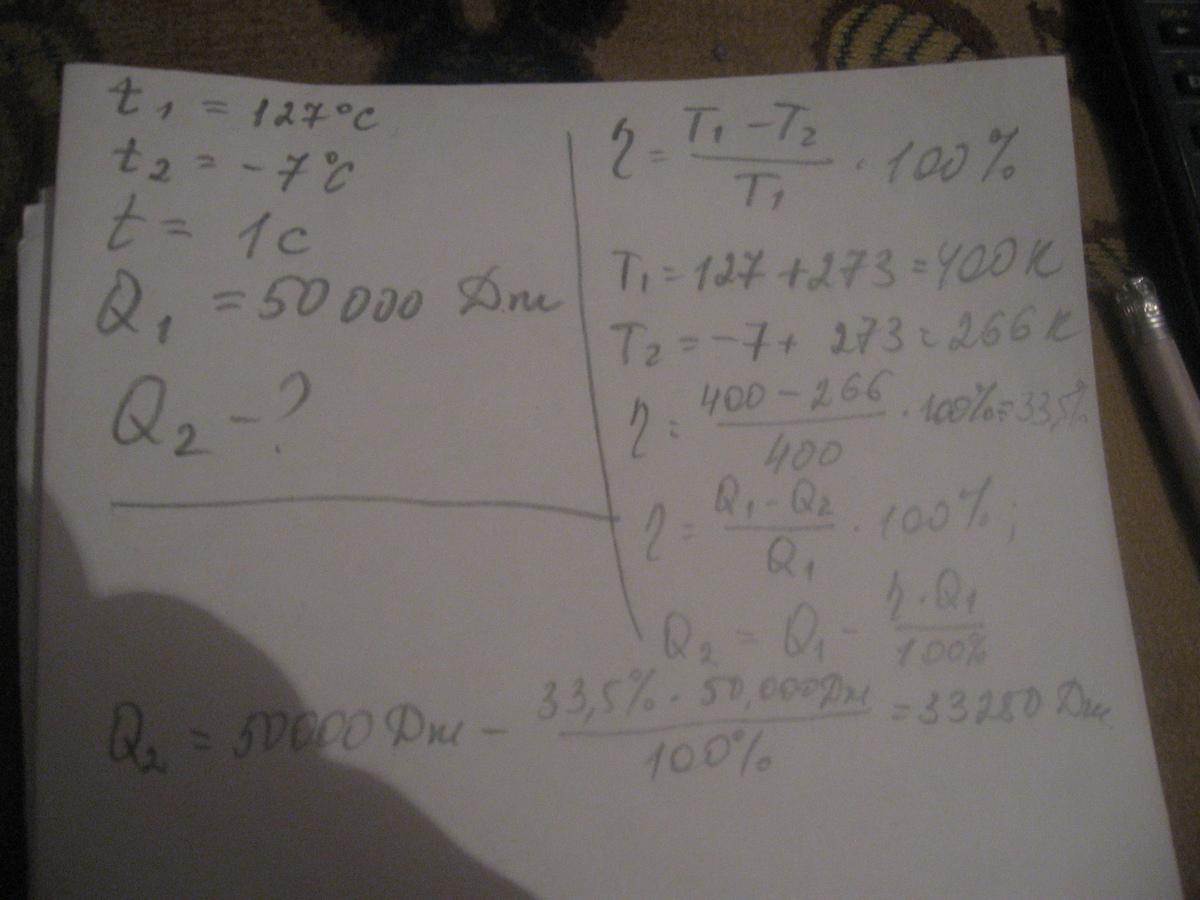 t₁ = 127°C
t₂ = -7°C
t = 1c
Q₁ = 50 000 Дж
Q₂ - ?
η = (T₁ - T₂) / T₁ · 100%
T₁ = 127 + 273 = 400 К
T₂ = -7 + 273 = 266 К
η = (400 - 266) / 400 · 100% = 33,5%
η = (Q₁ - Q₂) / Q₁ · 100% ;
Q₂ = Q₁ - (η · Q₁) / 100%
Q₂ = 50000 Дж - (33,5% · 50,000 Дж) / 100% = 33250 Дж